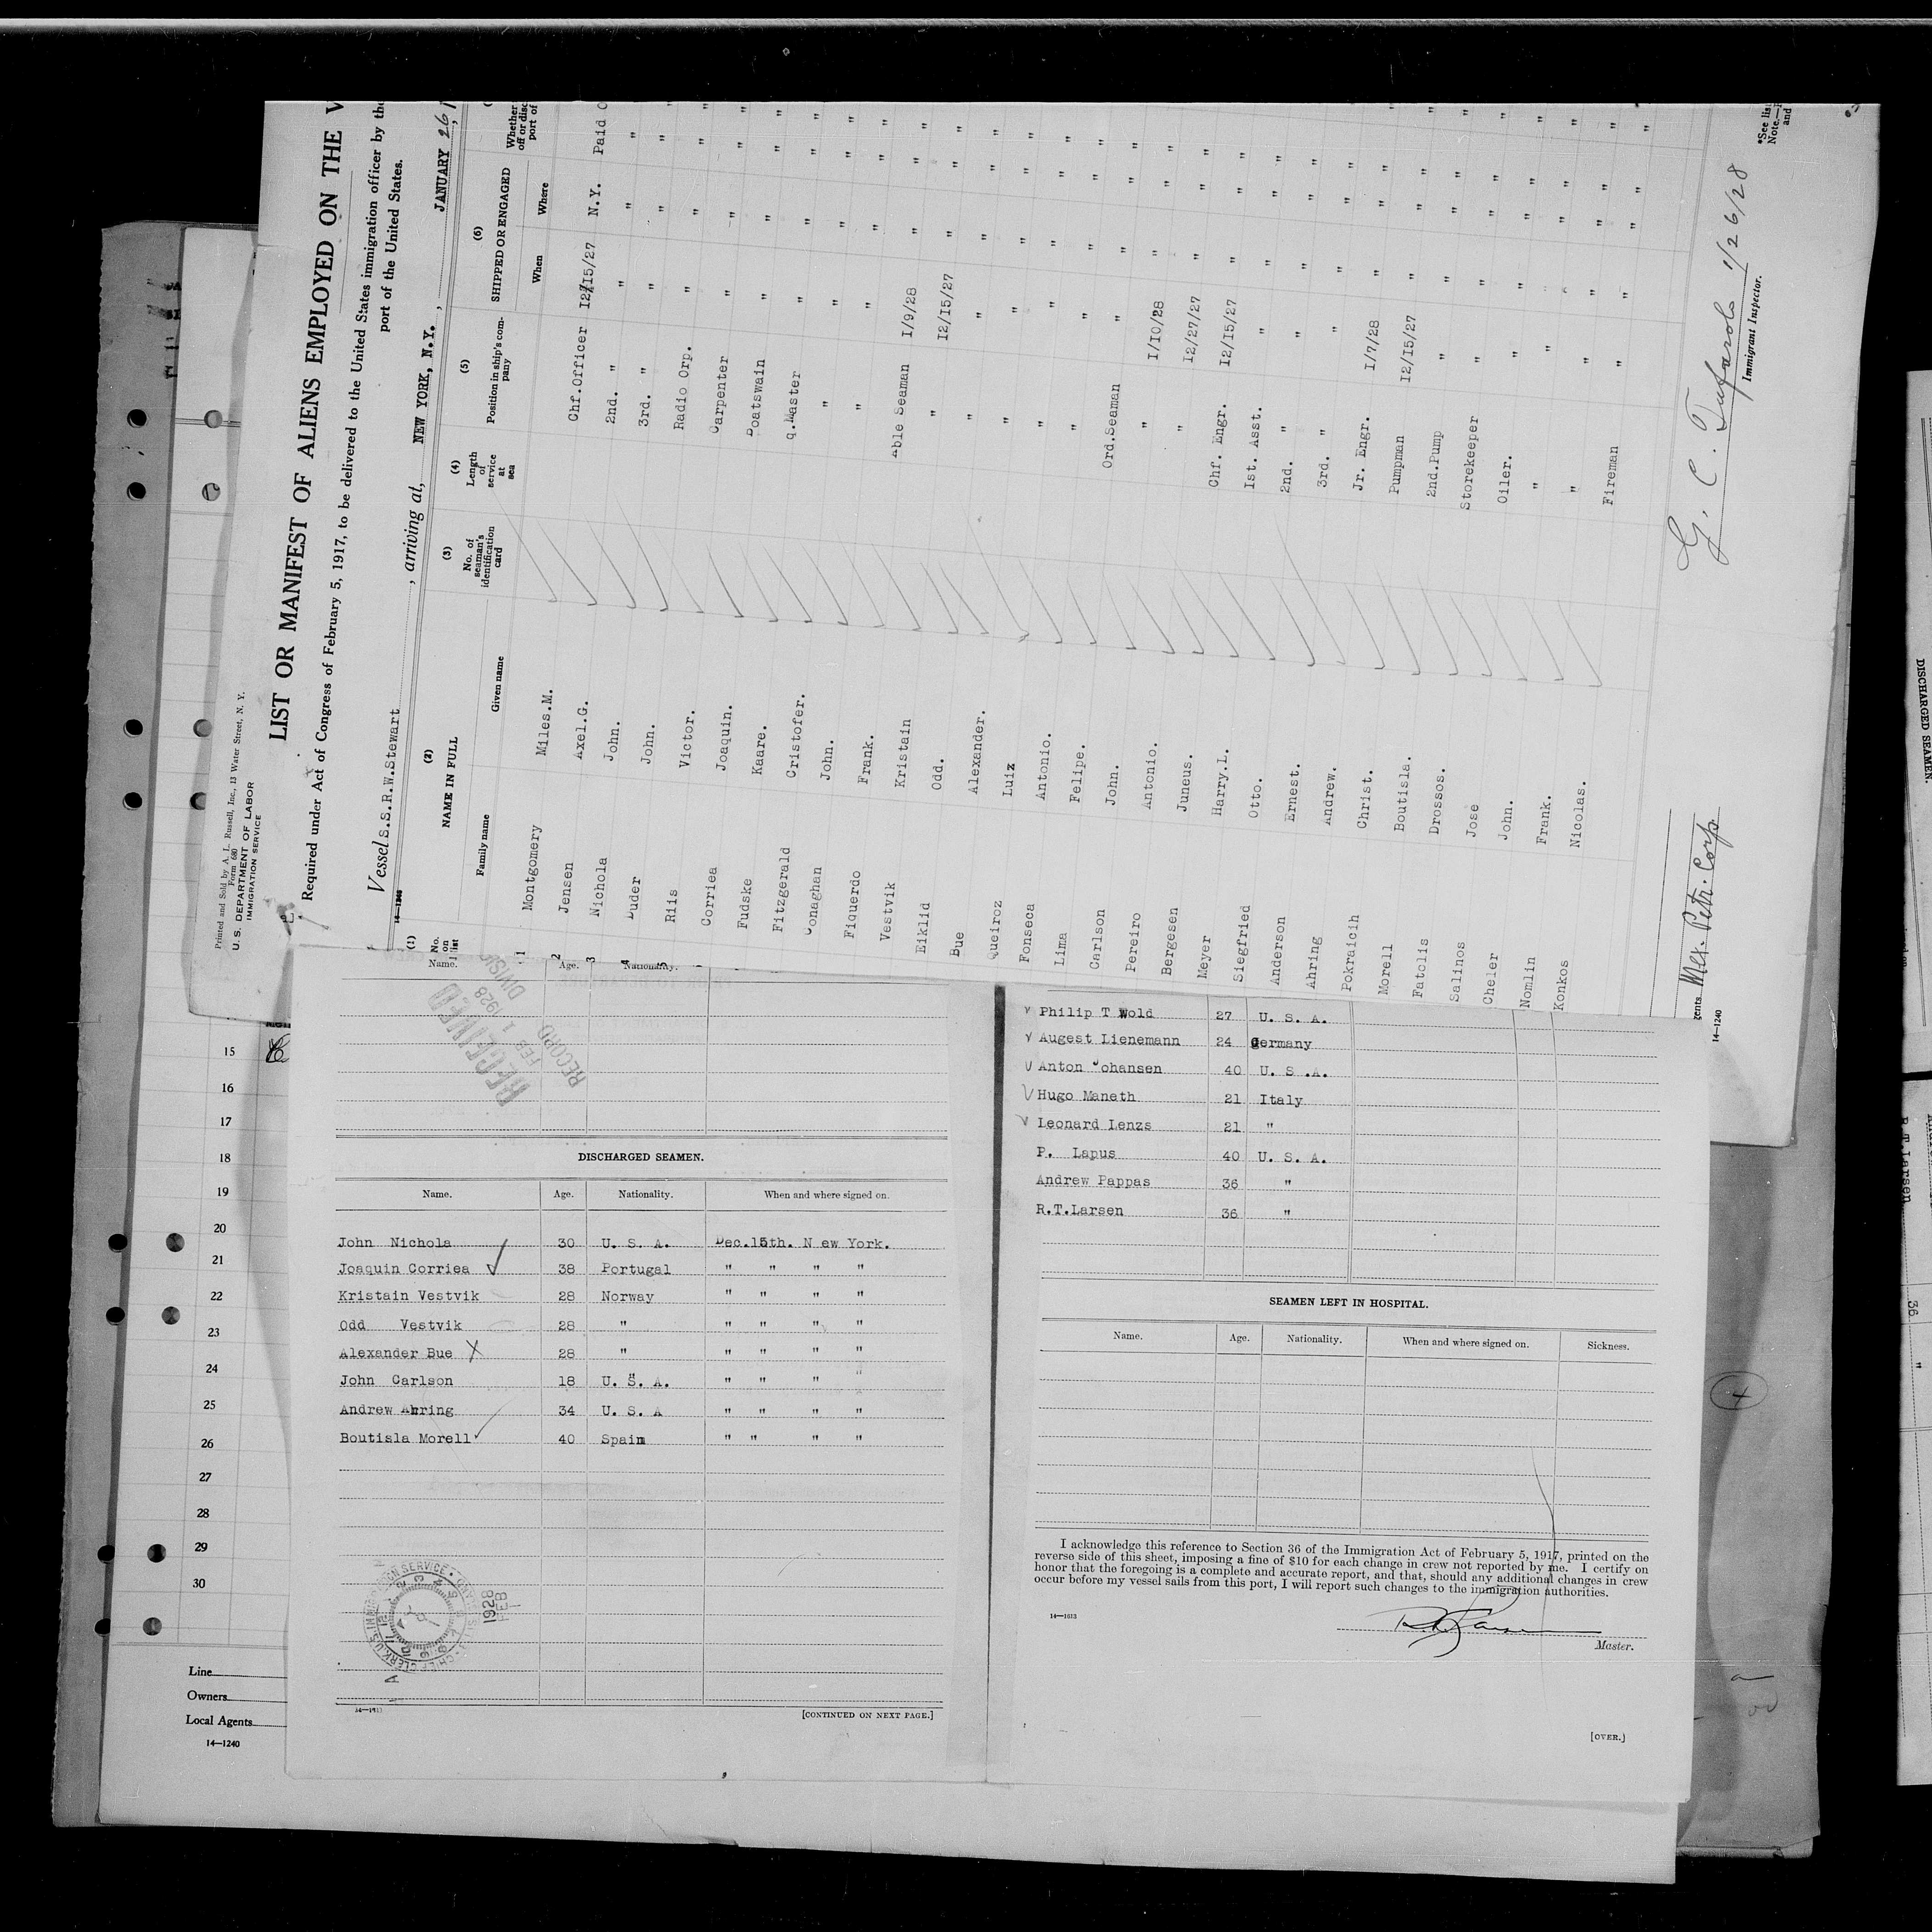 Printed and Sold by A. L. Russell, Inc., 13 Water Street, N. Y.
Form 680
U. S. DEPARTMENT OF LABOR
IMMIGRATION SERVICE
LIST OR MANIFEST OF ALIENS EMPLOYED ON THE V
Required under Act of Congress of February 5, 1917, to be delivered to the United States immigration officer by the
port of the United States.
Vessel S.S.R.W.Stewart, arriving at, NEW YORK, N.Y., JANUARY 26, 1
14—1240
(1) (2) (3) (4) (5) (6)
No. on list NAME IN FULL No. of seaman's identification card Length of service at sea Position in ship's company SHIPPED OR ENGAGED Whether off or disc port of
Family name Given name When Where
1 Montgomery Miles.M. Chf.Officer 12/15/27 N.Y. Paid O
2 Jensen Axel.G. 2nd. " " " "
3 Nichola John. 3rd. " " " "
4 Duder John. Radio Orp. " " "
5 Riis Victor. Carpenter " " "
Corriea Joaquin. Boatswain " " "
Fudske Kaare. q.Master " " "
Fitzgerald Cristofer. " " " "
Conaghan John. " " " "
Fiquerdo Frank. Able Seaman 1/9/28 " "
Vestvik Kristain " 12/15/27 " "
Eiklid Odd. " " " "
Bue Alexander. " " " "
Queiroz Luiz " " " "
Fonseca Antonio. " " " "
Lima Felipe. Ord.Seaman " " "
Carlson John. " 1/10/28 " "
Pereiro Antonio. " 12/27/27 " "
Bergesen Juneus. Chf. Engr. 12/15/27 " "
Meyer Harry.L. Ist. Asst. " " "
Siegfried Otto. 2nd. " " " "
Anderson Ernest. 3rd. " " " "
Ahring Andrew. Jr. Engr. 1/7/28 " "
Pokraicih Christ. Pumpman 12/15/27 " "
Morell Boutisla. 2nd.Pump " " "
Fatolis Drossos. Storekeeper " " "
Salinos Jose Oiler. " " "
Cheler John. " " " "
Nomlin Frank. " " " "
Konkos Nicolas. Fireman " " "
gents Mex. Petr. Corp.
14—1240
G. C. Tufarolo 1/26/28
Immigrant Inspector.
*See lis
Note.—
and
Name. Age. Nationality.
RECEIVED
FEB 1 1928
RECORD DIVISIO
DISCHARGED SEAMEN.
Name. Age. Nationality. When and where signed on.
John Nichola 30 U. S. A. Dec.15th. N ew York.
Joaquin Corriea 38 Portugal " " " "
Kristain Vestvik 28 Norway " " " "
Odd Vestvik 28 " " " " "
Alexander Bue 28 " " " " "
John Carlson 18 U. S. A. " " " "
Andrew Ahring 34 U. S. A " " " "
Boutisla Morell 40 Spain " " " "
1928
FEB
1
[CONTINUED ON NEXT PAGE.]
Philip T Wold 27 U. S. A.
Augest Lienemann 24 Germany
Anton Johansen 40 U. S .A.
Hugo Maneth 21 Italy
Leonard Lenzs 21 "
P. Lapus 40 U. S. A.
Andrew Pappas 36 "
R.T.Larsen 36 "
SEAMEN LEFT IN HOSPITAL.
Name. Age. Nationality. When and where signed on. Sickness.
I acknowledge this reference to Section 36 of the Immigration Act of February 5, 1917, printed on the
reverse side of this sheet, imposing a fine of $10 for each change in crew not reported by me. I certify on
honor that the foregoing is a complete and accurate report, and that, should any additional changes in crew
occur before my vessel sails from this port, I will report such changes to the immigration authorities.
14—1613
Master.
[OVER.]
15
16
17
18
19
20
21
22
23
24
25
26
27
28
29
30
Line
Owners
Local Agents
14—1240
4
DISCHARGED SEAMEN.
R.T.Larsen
36
"